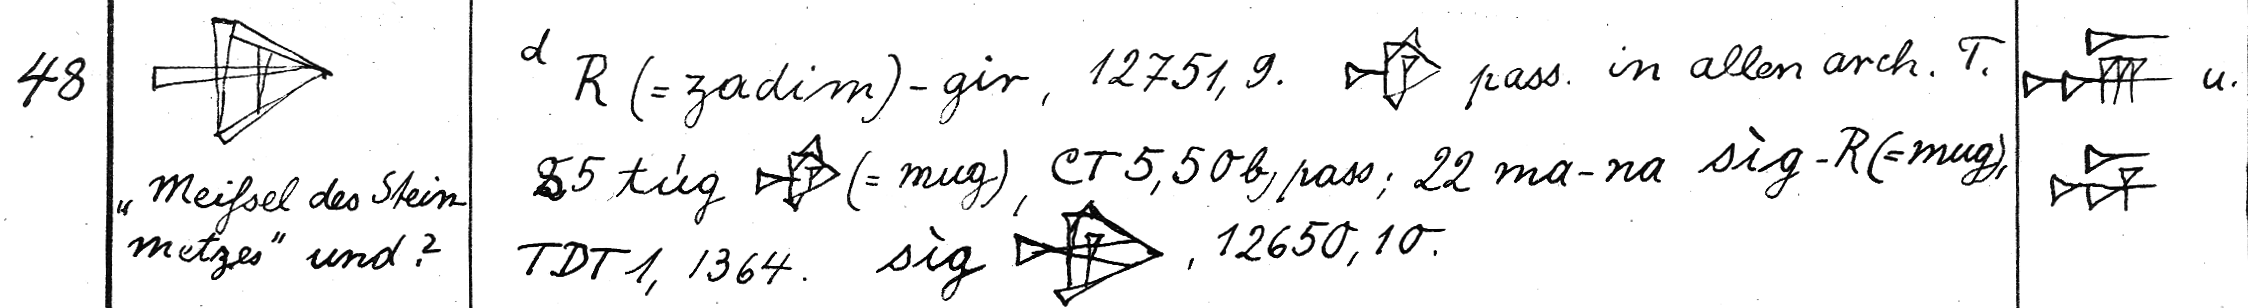 48
"Meißel des Stein
metzes" und?
d R (=zadim)-gir, 12751, 9. pass. in allen arch. T.
55 túg (= mug), CT 5, 50b, pass; 22 ma-na sìg-R(=mug),
TDT 1, 1364. sìg , 12650, 10.
u.